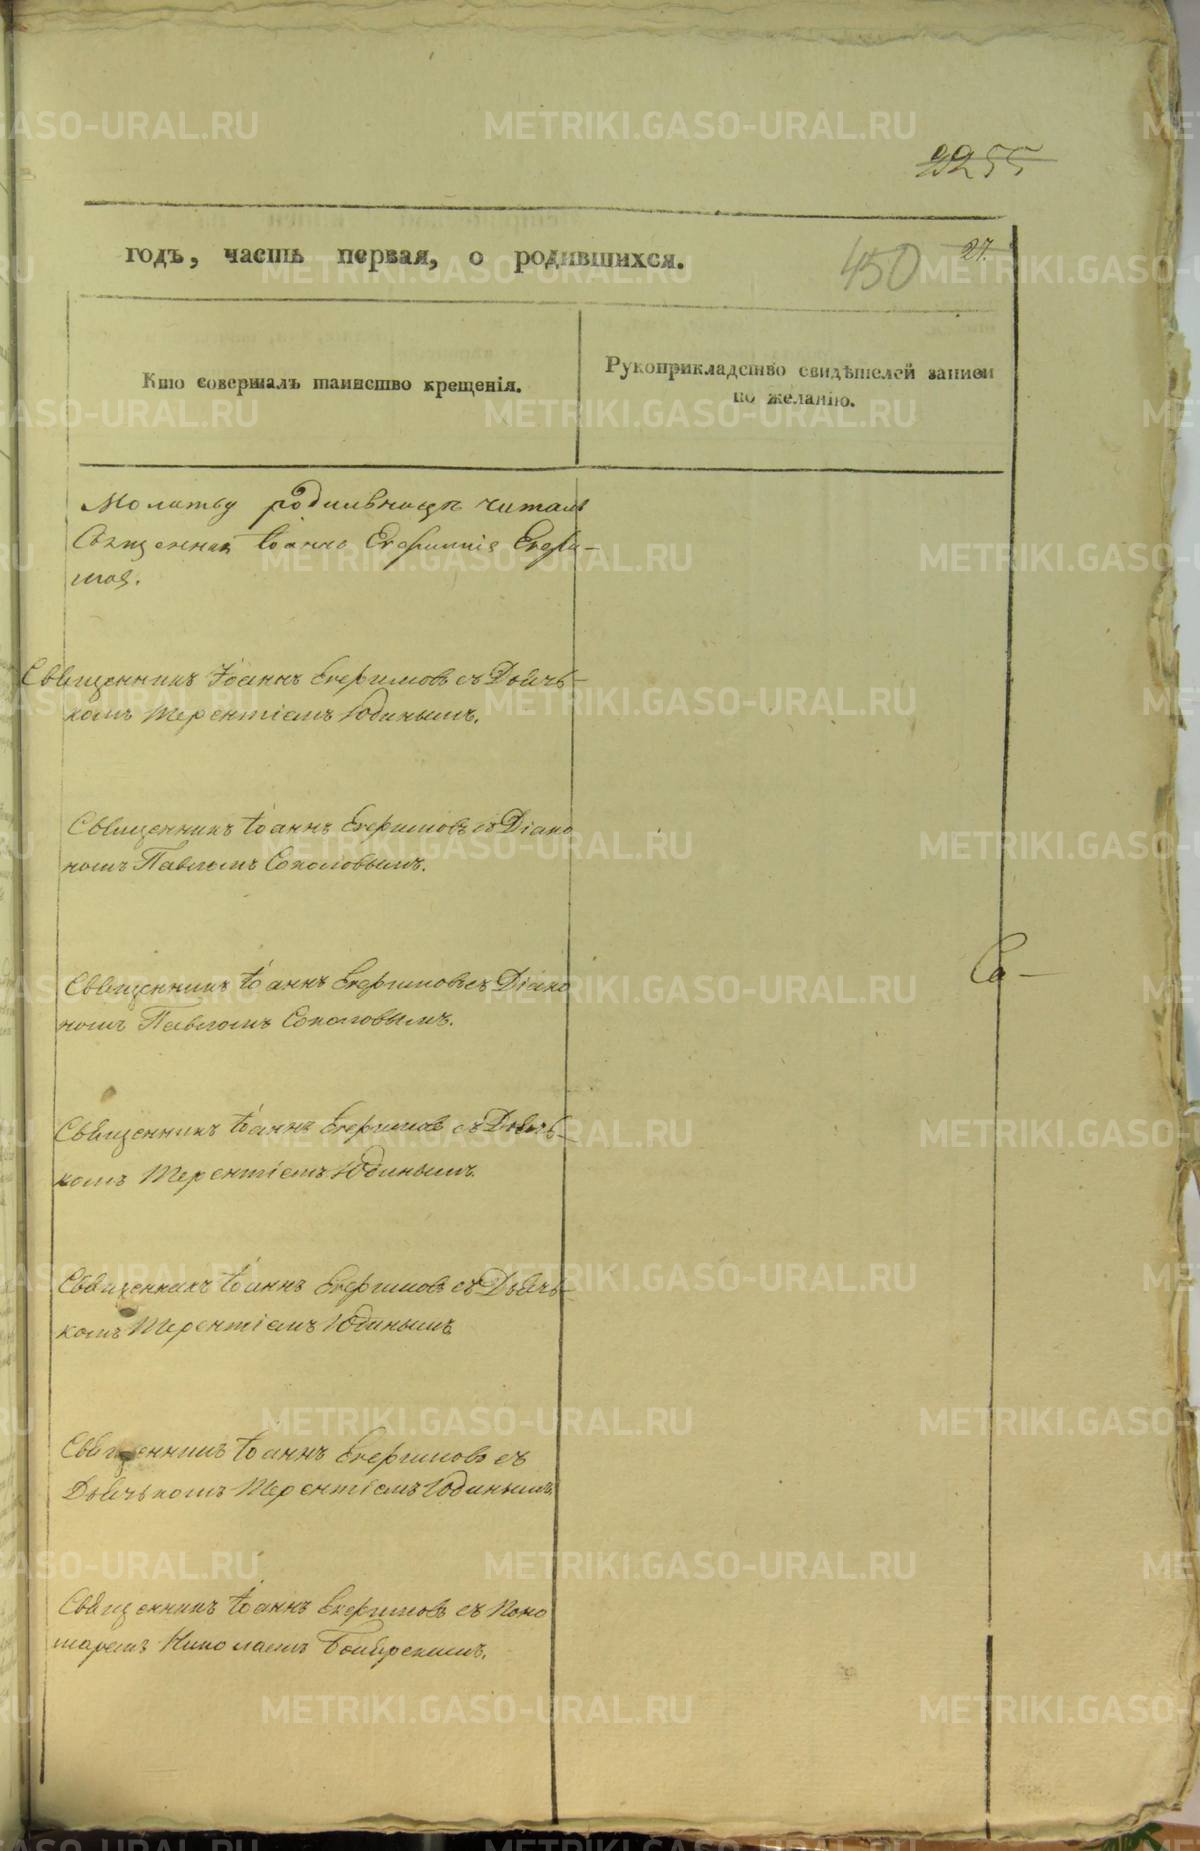 2255
годъ, часть первая, о родившихся.
450
27.
Кто совершалъ таинство крещенія.
Рукоприкладство свидѣтелей записи
по желанію.
Молитву родильницѣ читалъ
Священникъ Іоаннъ
Священникъ Іоаннъ Евфимовъ съ Дьячь-
комъ Терентіемъ Юдинымъ.
Священникъ Іоаннъ Евфимовъ съ Діако
номъ Павломъ Соколовымъ.
Священникъ Іоаннъ Евфимовъ съ Діако
номъ Павломъ Соколовымъ.
Са-
Священникъ Іоаннъ Евфимовъ съ Дьячь-
комъ Терентіемъ Юдинымъ.
Священникъ Іоаннъ Евфимовъ съ Дьячь-
комъ Терентіемъ Юдинымъ
Священникъ Іоаннъ Евфимовъ съ
Дьячькомъ Терентіемъ Юдинымъ.
Священникъ Іоаннъ Евфимовъ съ Поно
маремъ Николаемъ
METRIKI.GASO-URAL.RU